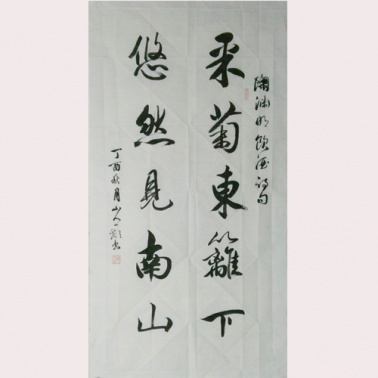 陶渊明饮酒诗句
采菊東籬下
悠然見南山
丁酉秋月山人